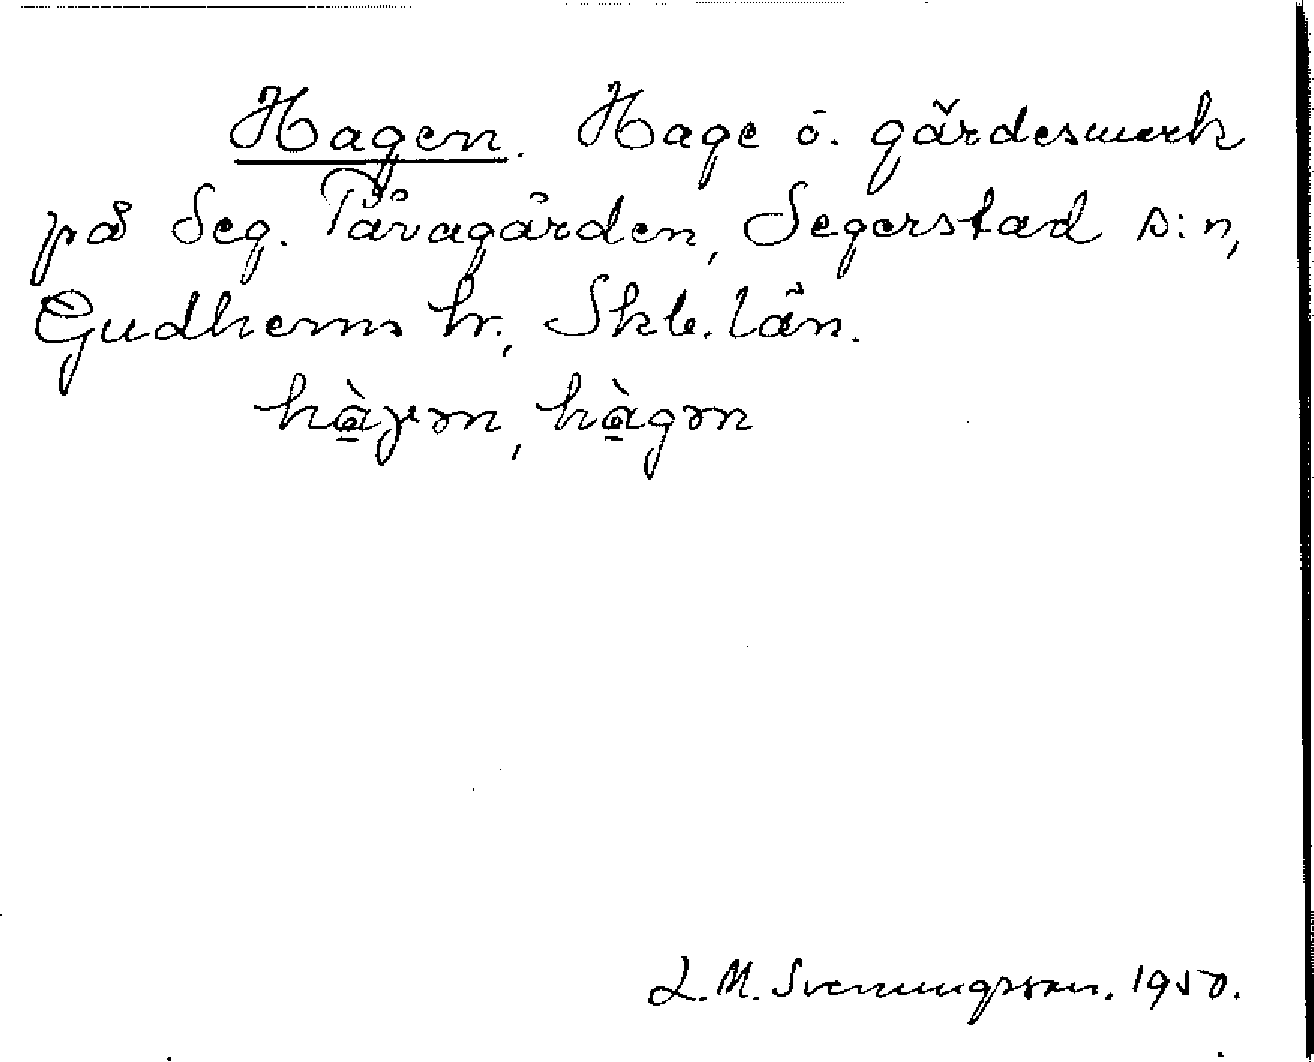 Hagen. Hage ö. gärdesmark
på Seg. Påvagården, Segerstad s:n,
Gudhems hr., Skb. län.
hàgən, hàgən
L. M. Svenungsson. 1950.